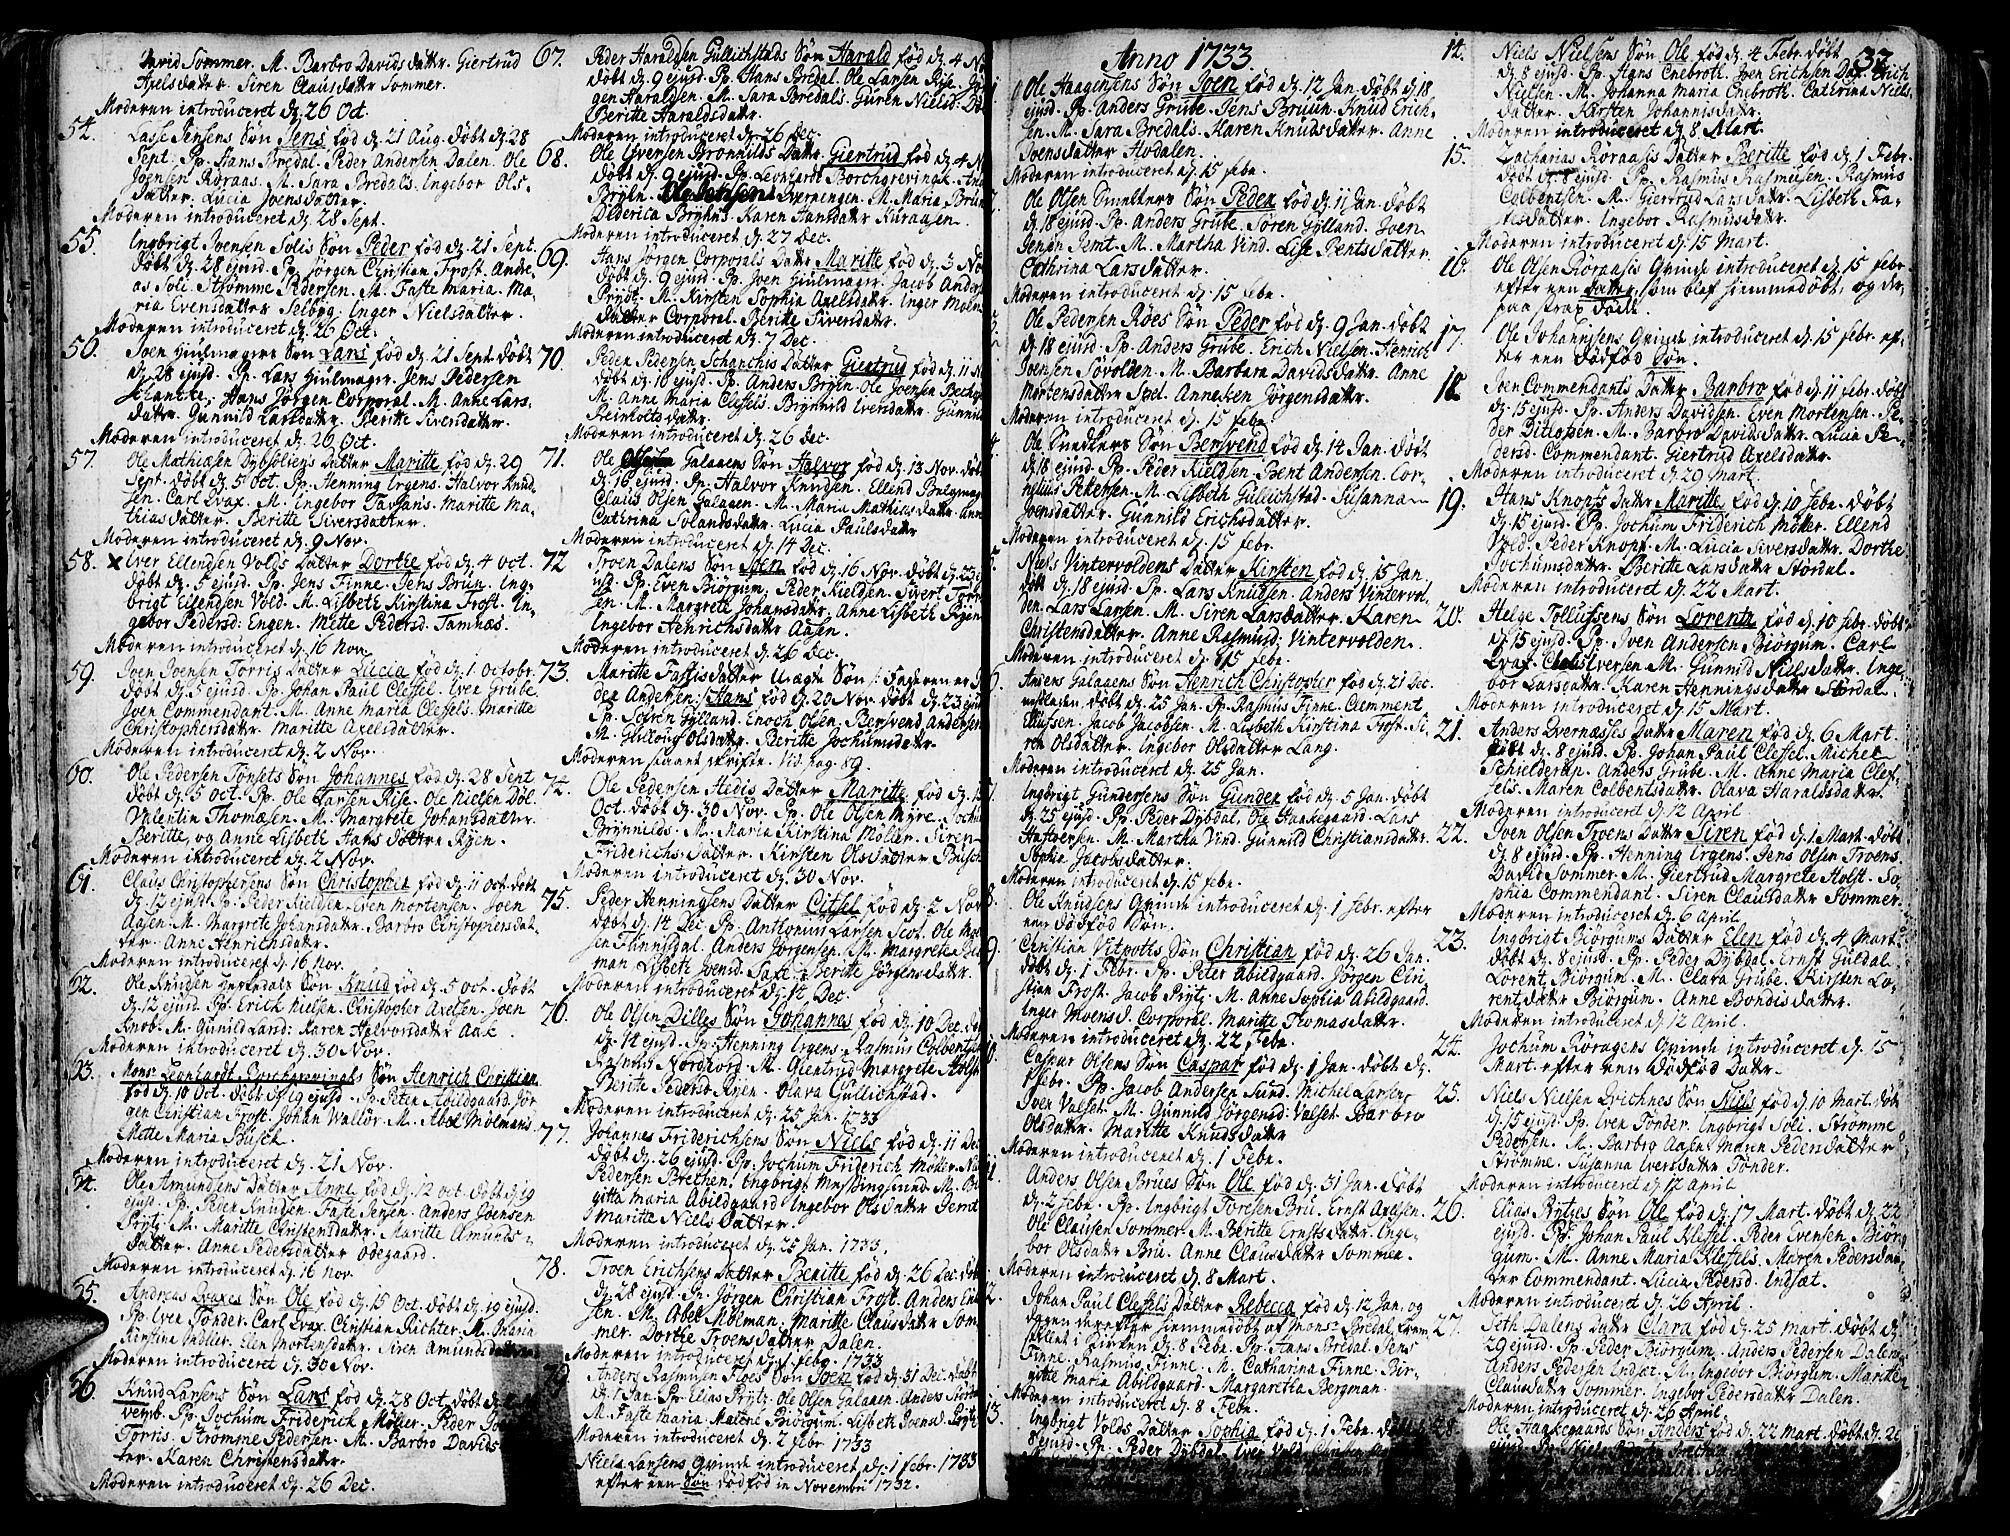 David Sommer. M. Barbro Davids datter. Giertrud
Axelsdatter. Siren Clausdatter Sommer.
Moderen introduceret d. 26 Oct.
54. Lasse Jensens Søn Jens fød d. 21 Aug. døbt d. 28
Sept. Pp. Hans Bredal. Peder Andersen Dalen. Ole
Joensen Røraas. M. Sara Bredals. Ingebor Ols-
datter. Lucia Joensdatter.
Moderen introduceret d. 28 Sept.
55. Ingbrigt Joensen Solis Søn Peder fød d. 21 Sept.
døbt d. 28 ejusd. Pp. Jørgen Christian Frost. Andre-
as Soli. Strømme Pedersen. M. Faste Maria. Ma-
ria Evensdatter Selbyg. Inger Nielsdatter.
Moderen introduceret d. 26 Oct.
56. Joen Hiulmagers Søn Lars fød d. 21 Sept. døbt
d. 28 ejusd. Pp. Lars Hiulmager. Jens Pedersen
Schancke. Hans Jörgen Corporal. M. Anne Lars-
datter. Gunnild Larsdatter. Beritte Siversdatter.
Moderen introduceret d. 26 Oct.
57. Ole Mathiasen Dybsøliens Datter Maritte fød d. 29
Sept. døbt d. 5 Oct. Pp. Henning Irgens. Halvor Knud-
sen. Carl Qvax. M. Ingebor Tavsans. Maritte Ma-
thiasdatter. Beritte Siversdatter.
Moderen introduceret d. 9 Nov.
58. Iver Ellendsen Volds Datter Dorthe fød d. 4 Oct.
døbt d. 5 ejusd. Pp. Jens Finne. Jens Brun. Ing-
brigt Ellendsen Vold. M. Lisbeth Kirstina Frost. In-
gebor Pedersd. Engen. Mette Pedersd. Tamnæs.
Moderen introduceret d. 16 Nov.
59. Joen Joensen Torris Datter Lucia fød d. 1 Octobr.
døbt d. 5 ejusd. Pp. Johan Paul Clessel. Iver Grube.
Joen Commendant. M. Anne Maria Clessels. Maritte
Christophersdatter. Maritte Axelsdatter.
Moderen introduceret d. 2 Nov.
60. Ole Pedersen Tønsets Søn Johannes fød d. 28 Sept
døbt d. 5 Oct. Pp. Ole Larsen Rise. Ole Nielsen Döl.
Valentin Thomæsen. M. Margrete Johansdatter.
Beritte, og Anne Lisbeth Hans døtre Ryen.
Moderen introduceret d. 2 Nov.
61. Claus Christophersens Søn Christopher fød d. 11 Oct. døbt
d. 12 ejusd. Pp. Peder Kieldsen. Even Mortensen. Joen
Aasen. M. Margrete Johansdatter. Barbro Christophersdat-
ter. Anne Henrichsdatter.
Moderen introduceret d. 16 Nov.
62. Ole Knudsen Herjedals Søn Knud fød d. 5 Oct. døbt
d. 12 ejusd. Pp. Erick Nielsen. Christopher Axelsen. Joen
Knob. M. Gunild Land: Karen Halvorsdatter Aae
Moderen introduceret d. 30 Nov.
63. Mons Leonhardt Borchgrevingks Søn Henrich Christian
fød d. 10 Oct. døbt d. 19 ejusd. Pp. Peter Abildgaard. Jör-
gen Christian Frost. Johan Wallör. M. Abel Mölmans.
Mette Maria Busch.
Moderen introduceret d. 21 Nov.
64. Ole Amundsens Datter Anne fød d. 12 Oct. døbt d. 19
ejusd. Pp. Peder Knudsen. Faste Jensen. Anders Joensen
Prytz. M. Maritte Christensdatter. Maritte Amunds-
datter. Anne Pedersdatter Ødegaard.
Moderen introduceret d. 16 Nov.
65. Andreas Qvaxes Søn Ole fød d. 15 Oct. døbt d. 19 ejusd.
Pp. Iver Tønder. Carl Qvax. Christian Richter. M. Maria
Kirstina Hadler. Elen Mortensdatter. Siren Amundsdatter
Moderen introduceret d. 30 Nov.
66. Knud Larsens Søn Lars fød d. 28 Oct. døbt d.
vemb. Pp. Jochum Friderick Möller. Peder
Torris. Strømme Pedersen. M. Barbro Davids
ter. Karen Christensdatter.
Moderen introduceret d. 26 Dec.
67. Peder Haraldsen Gullichstads Søn Harald fød d. 4
døbt d. 9 ejusd. Pp. Hans Bredal. Ole Larsen Rise.
gen Haraldsen. M. Sara Bredals. Guren Nielsd.
Beritte Haraldsdatter.
Moderen introduceret d. 26 Dec.
68. Ole Iversen Bronnilds Datter Giertrud fød d. 4
døbt d. 9 ejusd. Pp. Leonhardt Borchgrevingk.
Bryhn. Ole Jensen Sverpengen. M. Maria
Dlderica Bryhns. Karen Hansdatter Kuraasen.
Moderen introduceret d. 27 Dec.
69. Hans Jörgen Corporals Datter Maritte fød d. 3
døbt d. 9 ejusd. Pp. Joen Hiulmager. Jacob
Prydz. M. Kirsten Sophia Axelsdatter. Inger
datter Corporal. Beritte Siversdatter.
Moderen introduceret d. 7 Dec.
70. Peder Pedersen Schanchis Datter Giertrud fød d. 11
døbt d. 16 ejusd. Pp. Anders Bryhn. Ole Joensen
M. Anne Maria Clessels. Brynnild Iversdatter. Gunnild
Reinholtsdatter.
Moderen introduceret d. 26 Dec.
71. Ole Galaaens Søn Halvor fød d. 13 Nov. døbt
d. 16 ejusd. Pp. Halvor Knudsen. Ellend
Claus Olsen Galaaen. M. Maria Mathiasdatter.
Cathrina Solandsdatter. Lucia Paulsdatter
Moderen introduceret d. 14 Dec.
72. Troen Dalens Søn Joen fød d. 16 Nov. døbt d. 23
Pp. Even Biörgum. Peder Kieldsen. Sivert
sen. M. Margrete Johansdatter. Anne Lisbeth Ryen
Ingebor Henrichsdatter Aasen.
Moderen introduceret d. 26 Dec.
73. Maritte Fastisdatter Uægte Søn /: Faderen er
der Andersen :/ Hans fød d. 20 Nov. døbt d. 23
Pp. Søfren Gylland. Enoch Olsen. Bersvend Andersen
M. Gullong Olsdatter. Beritte Jochumsdatter.
Moderen staaet skrifte. Vid. Pag. 89.
74. Ole Pedersen Hedis Datter Maritte fød d.
Oct. døbt d. 30 Nov. Pp. Ole Olsen Myre.
Brynnilds. M. Maria Kirstina Möller. Siren
Friderichsdatter. Kirsten Olsdatter Busch
Moderen introduceret d. 30 Nov.
75. Peder Henningsens Datter Citsel fød d. 2 Nov
døbt d. 14 Dec. Pp. Anthonius Larsen Scot. Ole
sen Flinnisdal. Anders Jörgensen. M. Margrete
man. Lisbeth Joensd. Sate. Beritte Jörgensdatter.
Moderen introduceret d. 14 Dec.
76. Ole Olsen Dilles Søn Johannes fød d. 10 Dec.
d. 14 ejusd. Pp. Henning Irgens. Rasmus Colbentsen
Rasmus Nordtvord. M. Giertrud Margrete Holst.
Berite Pedersd Ryen. Olava Gullichstad.
Moderen introduceret d. 25 Jan. 1733
77. Johannes Friderichsens Søn Niels fød d. 11 Dec
døbt d. 26 ejusd. Pp. Jochum Friderich Möller.
Pedersen Brechen. Ingbrigt Messingsmed. M.
gitta Maria Abildgaard. Ingebor Olsdatter Jemt
Maritte Niels Datter.
Moderen introduceret d. 25 Jan. 1733.
78. Troen Erichsens Datter Beritte fød d. 26 Dec. døbt
d. 28 ejusd. Pp. Jörgen Christian Frost. Anders
sen. M. Abel Mölman. Maritte Clausdatter Som
mer. Dorthe Troensdatter Dalen.
Moderen introduceret d. 1 febr. 1733
Anders Rasmusen Floes Søn Joen fød d. 31 Dec. døbt
d. 1 Jan. Pp. Elias Prytz. Ole Olsen Galaaen. Anders
M. Faste Maria. Malene Biörgum. Lisbeth Joensd. Prytz
Moderen introduceret d. 2 febr. 1733
Niels Larsens Qvinde introduceret d. 1 Febr. 1733
efter een Søn dødfød in Novembr 1732.
Anno 1733
Ole Haagensens Søn Joen fød d. 12 Jan. døbt d. 18
ejusd. Pp. Anders Grube. Jens Bruun. Knud Erich-
sen. M. Sara Bredals. Karen Knudsdatter. Anne
Joensdatter Hodalen.
Moderen introduceret d. 15 febr.
Ole Olsen Smelters Søn Peder fød d. 11 Jan. døbt
d. 18 ejusd. Pp. Anders Grube. Sören Gylland. Joen
Jensen Jemt. M. Martha Vind. Lise Bentsdatter.
Cathrina Larsdatter.
Moderen introduceret d. 15 febr.
Ole Pedersen Roes Søn Peder fød d. 9 Jan. døbt
d. 18 ejusd. Pp. Anders Grube. Erich Nielsen. Henrich
Joensen Sövolden. M. Barbara Davidsdatter. Anne
Mortensdatter Spel. Annesken Jörgensdatter.
Moderen introduceret d. 15 febr.
Ole Snedkers Søn Bersvend fød d. 14 Jan. døbt
d. 18 ejusd. Pp. Peder Kieldsen. Bent Andersen. Cor-
nelius Pettersen. M. Lisbeth Gullichstad. Susanna
Joensdatter. Gunnild Erichsdatter.
Moderen introduceret d. 15 febr.
Niels Vintervoldens Datter Kirsten fød d. 15 Jan.
døbt d. 18 ejusd. Pp. Lars Knudsen. Anders Vintervol-
den. Lars Larsen. M. Siren Larsdatter. Karen
Christensdatter. Anne Rasmusd. Vintervolden.
Moderen introduceret d. 15 febr.
Anders Galaaens Søn Henrich Christopher fød d. 21 Dec.
døbt d. 25 Jan. Pp. Rasmus Finne. Clemment
Jacob Jacobsen. M. Lisbeth Kirstina Frost. Si-
ren Olsdatter. Ingebor Olsdatter Lang.
Moderen introduceret d. 25 Jan.
Ingbrigt Gundersens Søn Gunder fød d. 5 Jan. døbt
d. 25 ejusd. Pp. Peder Dybdal. Ole Haakegaard. Lars
Haftversen. M. Martha Vind. Gunnild Christiansdatter.
Sophia Jacobsdatter.
Moderen introduceret d. 15 febr.
8. Ole Knudsens Qvinde introduceret d. 1 febr. efter
een dødfød Søn.
9. Christian Vitpoths Søn Christian fød d. 26 Jan.
døbt d. 1 Febr. Pp. Peter Abildgaard. Jörgen Chri-
stian Frost. Jacob Prytz. M. Anne Sophia Abildgaard.
Inger Moensd. Corporal. Maritte Thomasdatter.
Moderen introduceret d. 22 Febr.
Caspar Olsens Søn Caspar fød d. 1 Jan. døbt d.
1 febr. Pp. Jacob Andersen Sund. Michel Larsen.
Iver Valset. M. Gunnild Jörgensd: Valset. Barbro
Olsdatter. Maritte Knudsdatter
Moderen introduceret d. 1 Febr.
Anders Olsen Brües Søn Ole fød d. 31 Jan. døbt
d. 2 febr. Pp. Ingbrigt Toresen Brü. Ernst Axelsen.
Ole Clausen Sommer. M. Beritte Ernstsdatter. Inge-
bor Olsdatter Brü. Anne Clausdatter Sommer.
Moderen introduceret d. 8 Mart.
Johan Paul Clessels Datter Rebecca fød d. 12 Jan. og
dagen derefter hjemmedøbt af Monsr Bredal, frem
stillet i Kirken d. 8 Febr. Pp. Hans Bredal. Jens
Finne. Rasmus Finne. M. Catharina Finne. Bir-
gitte Maria Abildgaard. Margaretha Bergman.
Moderen introduceret d. 8 Febr.
13. Ingbrigt Volds Datter Sophia fød d. 1 Febr. døbt d.
8 ejusd. Pp. Peder Dybdal. Iver Vold.
37
14. Niels Nielsens Søn Ole fød d. 4 Febr. døbt
d. 8 ejusd. Pp. Hans Cnebroth. Joen Erichsen Dal. Erich
Nielsen. M. Johanna Maria Cnebroth. Cathrina Niels
datter. Kirsten Johannisdatter.
Moderen introduceret d. 8 Mart.
15. Zacharias Röraasis Datter Beritte fød d. 1 Febr.
døbt d. 8 ejusd. Pp. Rasmus Rasmusen. Rasmus
Colbentsen. M. Giertrud Larsdatter. Lisbeth Fa-
stesdatter. Ingebor Rasmusdatter.
Moderen introduceret d. 15 Mart.
16. Ole Olsen Röraasis Qvinde introduceret d. 15 febr.
efter een datter, som blef hjemmedøbt, og der
paa strax døde.
17. Ole Johannsens Qvinde introduceret d. 15 febr. ef-
ter een dødfød Søn.
18. Joen Commendants Datter Barbro fød d. 11 febr. døbt
d. 15 ejusd. Pp. Anders Davidsen. Even Mortensen. Pe-
der Ditlofsen. M. Barbro Davidsdatter. Lucia Pe-
dersd. Commendant. Giertrud Axelsdatter.
Moderen introduceret d. 29 Mart.
19. Hans Knopfs Datter Maritte fød d. 10 febr. døbt
d. 15 ejusd. Pp. Jochum Friderich Möller. Ellend
Vold. Peder Knopf. M. Lucia Siversdatter. Dorthe
Jochumsdatter. Beritte Larsdatter Stördal.
Moderen introduceret d. 22 Mart.
20. Helge Tollufsens Søn Lorentz fød d. 10 febr. døbt
d. 15 ejusd. Pp. Iven Andersen Biörgum. Carl
Qvax. Iversen. M. Gunnild Nielsdatter. Inge-
bor Larsdatter. Karen Henningsdatter Stördal.
Moderen introduceret d. 15 Mart.
21. Anders Qvernæsses Datter Maren fød d. 6 Mart.
døbt d. 8 ejusd. Pp. Johan Paul Clessel. Michel
Schielderup. Anders Grube. M. Anne Maria Cles-
sels. Maren Colbentsdatter. Olava Haraldsdatter.
Moderen introduceret d. 12 April
22. Joen Olsen Troens Datter Siren fød d. 1 Mart. døbt
d. 8 ejusd. Pp. Henning Irgens. Jens Olsen Troens.
David Sommer. M. Giertrud Margrete Holst. So-
phia Commendant. Siren Clausdatter Sommer.
Moderen introduceret d. 6 April
23. Ingbrigt Biörgums Datter Elen fød d. 4 Mart.
døbt d. 8 ejusd. Pp. Peder Dybdal. Ernst Guldal.
Lorentz Biörgum. M. Clara Grube. Kirsten Lo-
rentzdatter Biörgum. Anne Bondisdatter.
Moderen introduceret d. 12 April.
24. Jochum Röragens Qvinde introduceret d. 15
Mart. efter een dødfød Datter.
25. Niels Nielsen Qvichnes Søn Niels fød d. 10 Mart. døbt
d. 15 ejusd. Pp. Iver Tönder. Ingbrigt Soli. Strömme
Pedersen. M. Barbro Aasen. Maren Pedersdatter
Strömme. Susanna Iversdatter Tönder.
Moderen introduceret d. 12 April
26. Elias Prytzes Søn Ole fød d. 17 Mart. døbt d. 22
ejusd. Pp. Johan Paul Klessel. Peder Evensen. Biör-
gum. M. Anne Maria Klessels. Maren Pedersdat-
ter Commendant. Lucia Pedersd. Indsæt.
Moderen introduceret d. 26 April.
27. Seth Dalens Datter Clara fød d. 25 Mart. døbt d.
29 ejusd. Pp. Peder Biörgum. Anders Pedersen Dalen
Anders Pedersen Indsæt. M. Ingebor Biörgum. Maritte
Clausdatter Sommer. Ingebor Pedersdatter Dalen.
Moderen introduceret d. 26 April.
28. Ole Haakegaards Søn Anders fød d. 22 Mart. døbt d. 26